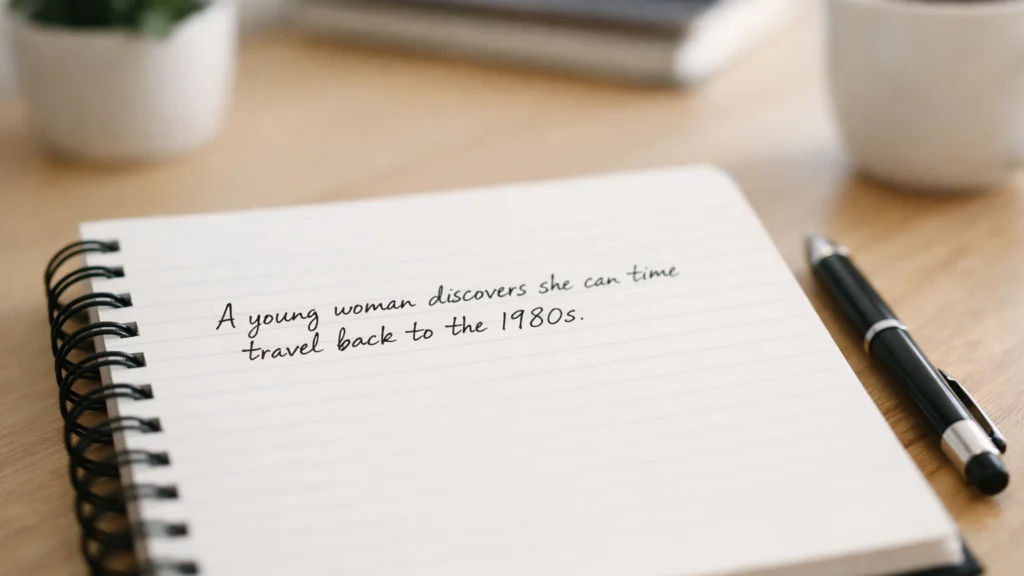 A young woman discovers she can time
travel back to the 1980s.